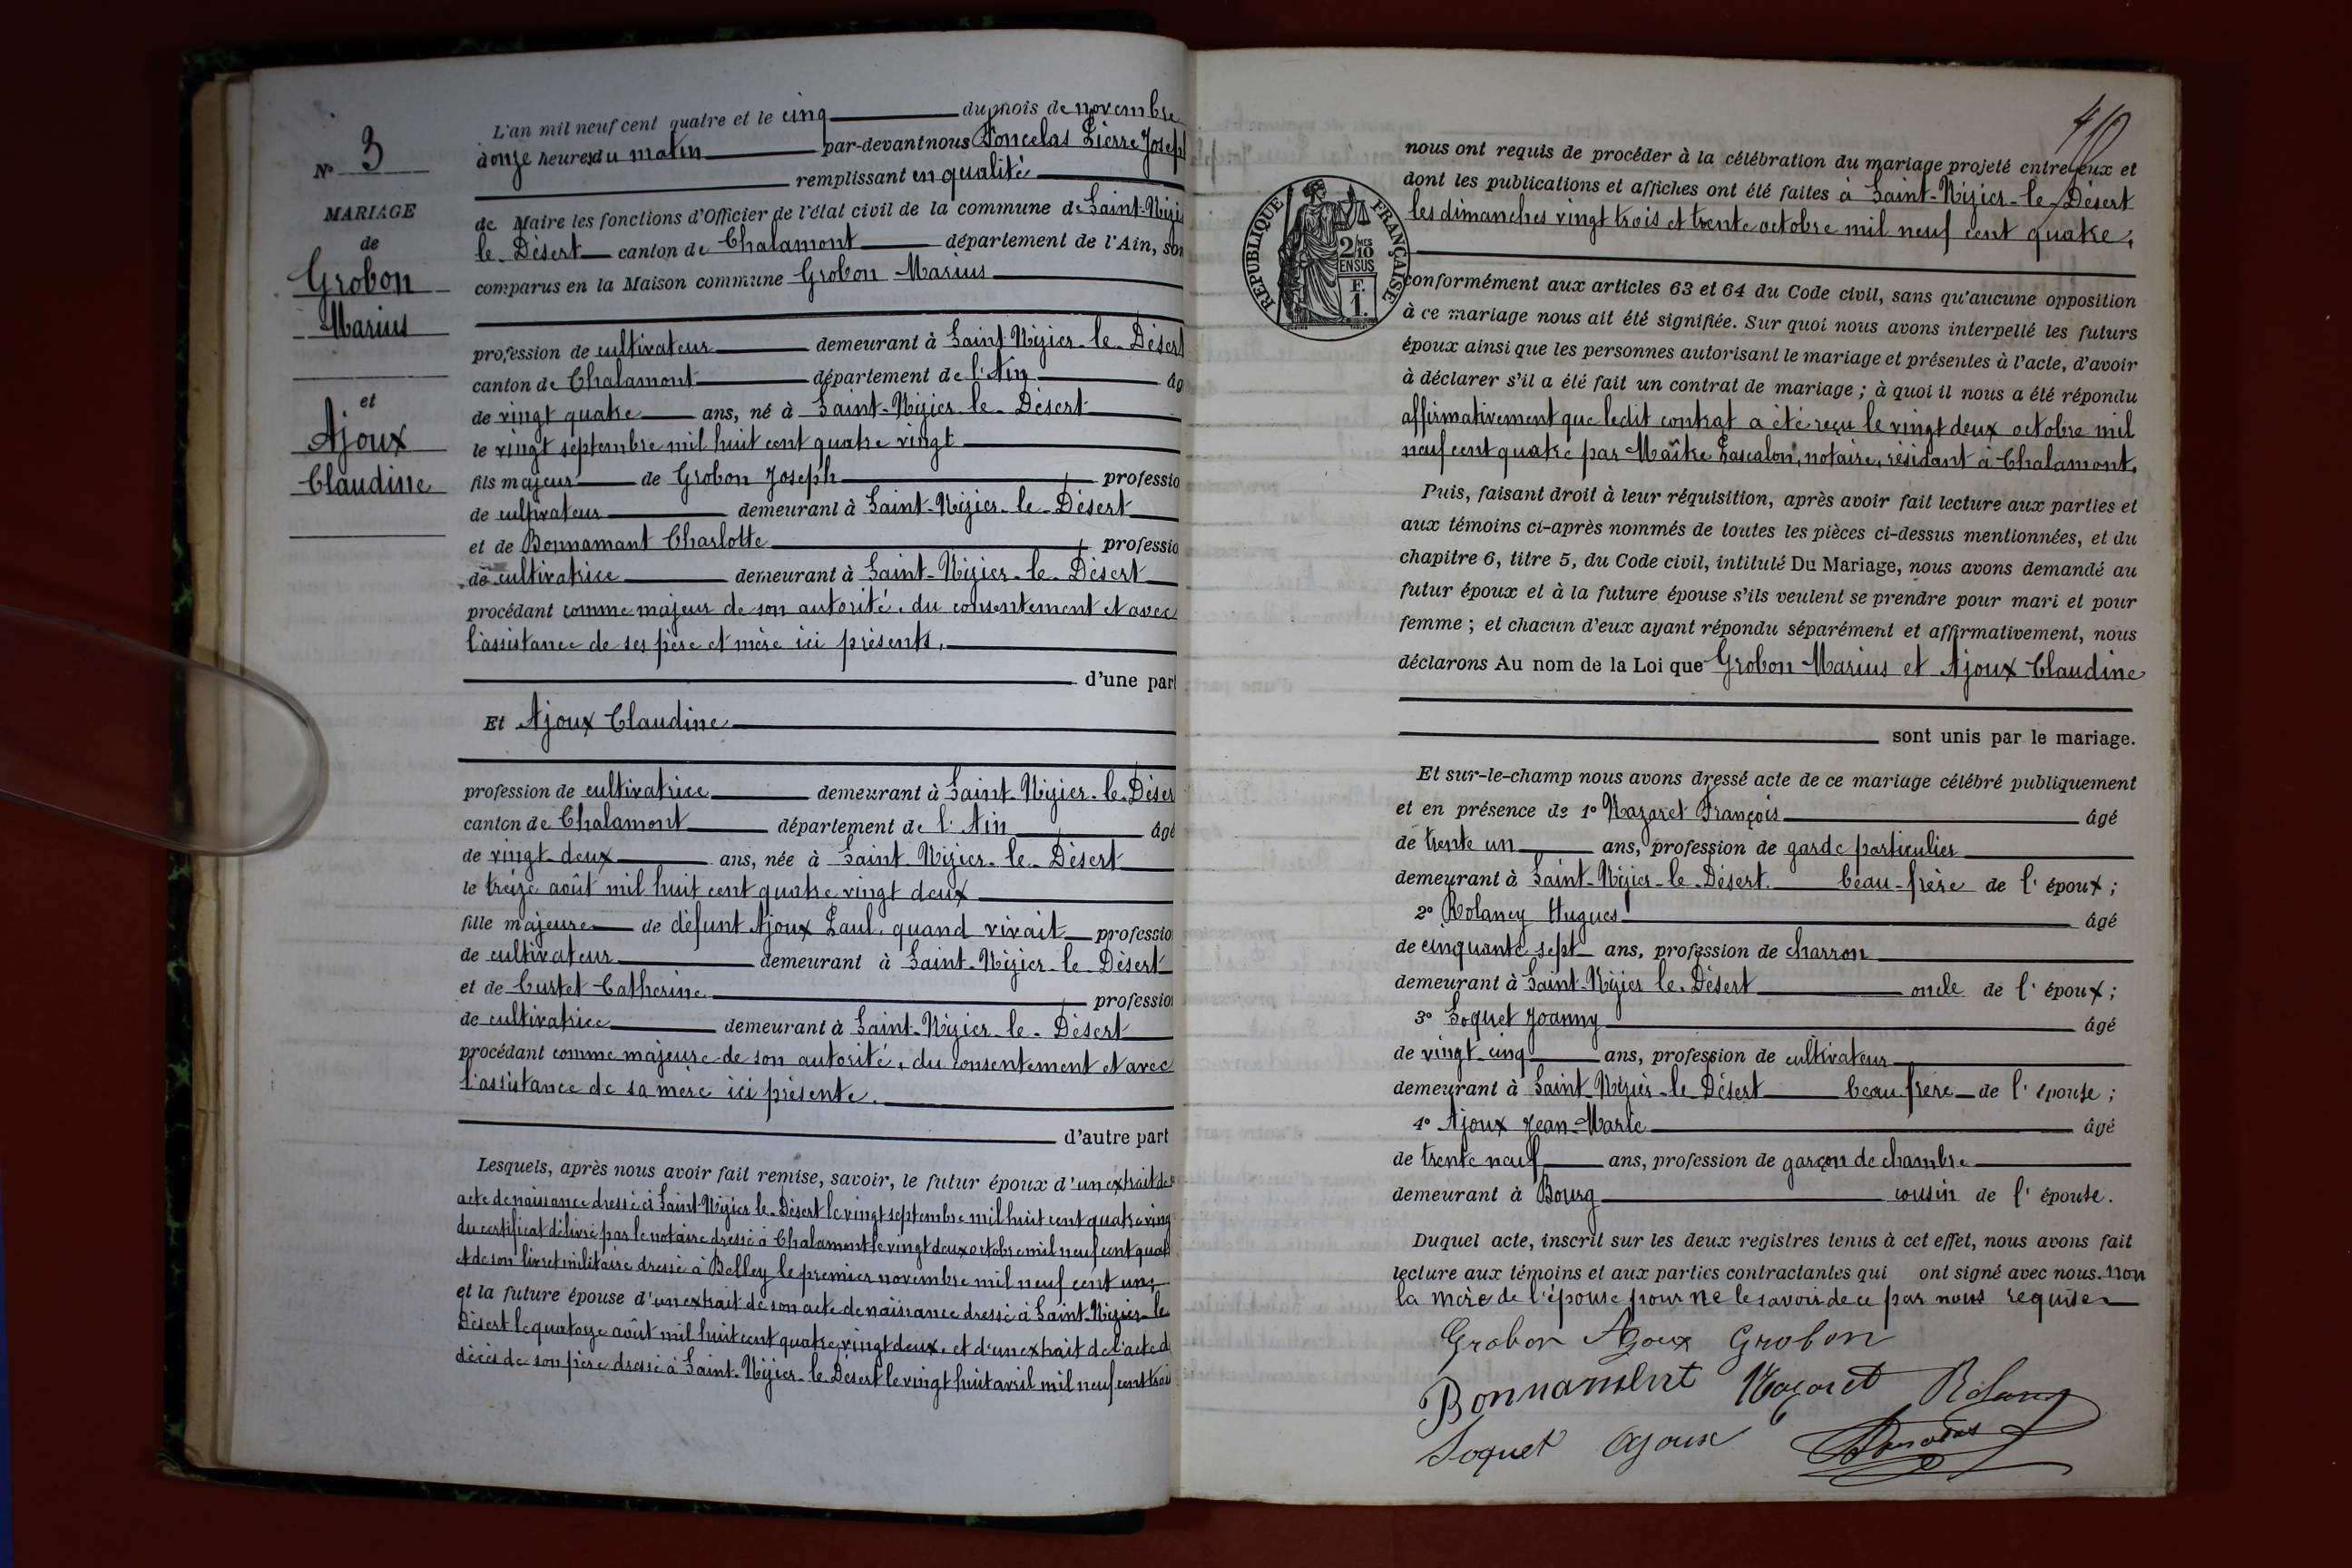 L'an mil neuf cent quatre et le cinq du mois de novembre
à onze heures du matin par-devant nous Poncelas Pierre Joseph
remplissant en qualité
de Maire les fonctions d'Officier de l'état civil de la commune de Saint-Nizier
le Désert canton de Chalamont département de l'Ain, son
comparus en la Maison commune Grobon Marius
profession de cultivateur demeurant à Saint-Nizier-le-Désert
canton de Chalamont département de l'Ain âg
de vingt quatre ans, né à Saint-Nizier-le-Désert
le vingt septembre mil huit cent quatre vingt
fils majeur de Grobon Joseph professio
de cultivateur demeurant à Saint-Nizier-le-Désert
et de Bonnamant Charlotte professio
de cultivatrice demeurant à Saint-Nizier-le-Désert
procédant comme majeur de son autorité, du consentement et avec
l'assistance de ses père et mère ici présents.
d'une part
Et Ajoux Claudine
profession de cultivatrice demeurant à Saint-Nizier-le-Déser
canton de Chalamont département de l'Ain âgé
de vingt-deux ans, née à Saint Nizier-le-Désert
le treize août mil huit cent quatre vingt deux
fille majeure de défunt Ajoux Paul, quand vivait professio
de cultivateur demeurant à Saint-Nizier-le-Désert
et de Curtet Catherine profession
de cultivatrice demeurant à Saint-Nizier-le-Désert
procédant comme majeure de son autorité, du consentement et avec
l'assistance de sa mère ici présente.
d'autre part
Lesquels, après nous avoir fait remise, savoir, le futur époux d'un extrait de
acte de naissance dressé à Saint-Nizier-le-Désert le vingt septembre mil huit cent quatre ving
du certificat délivré par le notaire dressé à Chalamont le vingt deux octobre mil neuf cent quat
et de son livret militaire dressé à Belley le premier novembre mil neuf cent un;
et la future épouse d'un extrait de son acte de naissance dressé à Saint-Nizier-le
Désert le quatorze août mil huit cent quatre vingt deux, et d'un extrait de l'acte d
décès de son père dressé à Saint-Nizier-le-Désert le vingt huit avril mil neuf cent troi
N° 3
MARIAGE
de
Grobon
Marius
et
Ajoux
Claudine
nous ont requis de procéder à la célébration du mariage projeté entre eux et
dont les publications et affiches ont été faites à Saint-Nizier-le-Désert
les dimanches vingt trois et trente octobre mil neuf cent quatre,
RÉPUBLIQUE FRANÇAISE
2 MES
10
EN SUS
F.
1.
conformément aux articles 63 et 64 du Code civil, sans qu'aucune opposition
à ce mariage nous ait été signifiée. Sur quoi nous avons interpellé les futurs
époux ainsi que les personnes autorisant le mariage et présentes à l'acte, d'avoir
à déclarer s'il a été fait un contrat de mariage ; à quoi il nous a été répondu
affirmativement que ledit contrat a été reçu le vingt deux octobre mil
neuf cent quatre par Maître Lascalon, notaire, résidant à Chalamont.
Puis, faisant droit à leur réquisition, après avoir fait lecture aux parties et
aux témoins ci-après nommés de toutes les pièces ci-dessus mentionnées, et du
chapitre 6, titre 5, du Code civil, intitulé Du Mariage, nous avons demandé au
futur époux et à la future épouse s'ils veulent se prendre pour mari et pour
femme ; et chacun d'eux ayant répondu séparément et affirmativement, nous
déclarons Au nom de la Loi que Grobon Marius et Ajoux Claudine
sont unis par le mariage.
Et sur-le-champ nous avons dressé acte de ce mariage célébré publiquement
et en présence de 1° Nazaret François âgé
de trente un ans, profession de garde particulier
demeurant à Saint-Nizier-le-Désert beau-frère de l'époux ;
2° Rolancy Hugues âgé
de cinquante sept ans, profession de charron
demeurant à Saint-Nizier le Désert oncle de l'époux ;
3° Soquet Joanny âgé
de vingt-cinq ans, profession de cultivateur
demeurant à Saint-Nizier-le-Désert beau-frère de l'épouse ;
4° Ajoux Jean-Marie âgé
de trente neuf ans, profession de garçon de chambre
demeurant à Bourg cousin de l'épouse.
Duquel acte, inscrit sur les deux registres tenus à cet effet, nous avons fait
lecture aux témoins et aux parties contractantes qui ont signé avec nous. non
la mère de l'épouse pour ne le savoir de ce par nous requise
Grobon Ajoux Grobon
Bonnamant Nazaret
Soquet Ajoux